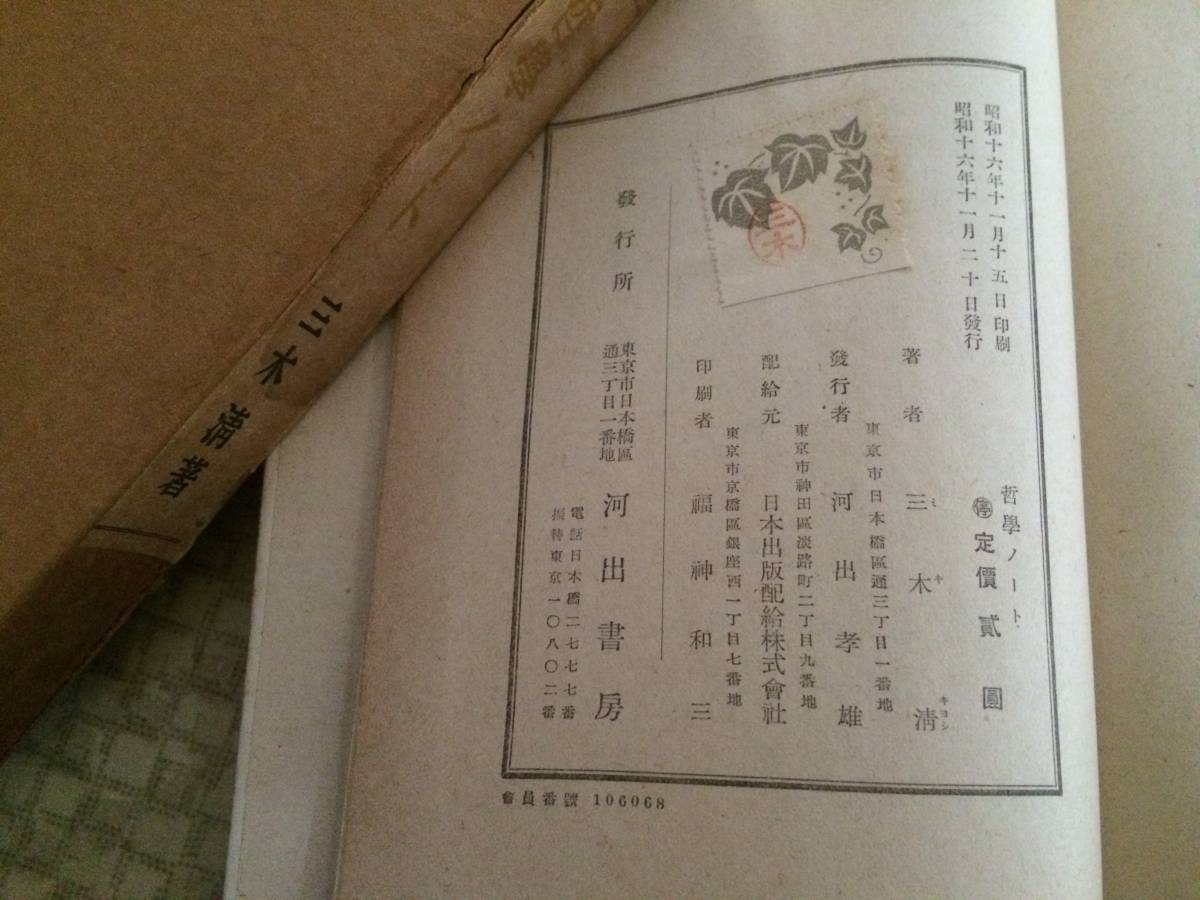 昭和十六年十一月十五日印刷
昭和十六年十一月二十日發行
哲學ノート
停 定價貳圓
著者 三木淸
ミキ キヨシ
東京市日本橋區通三丁目一番地
發行者 河出孝雄
東京市神田區淡路町二丁目九番地
配給元 日本出版配給株式會社
東京市京橋區銀座西一丁目七番地
印刷者 福神和三
發行所
東京市日本橋區
通三丁目一番地
河出書房
電話日本橋二七七七番
振替東京一〇八〇二番
三木
會員番號 106068
哲學ノート
三木淸著